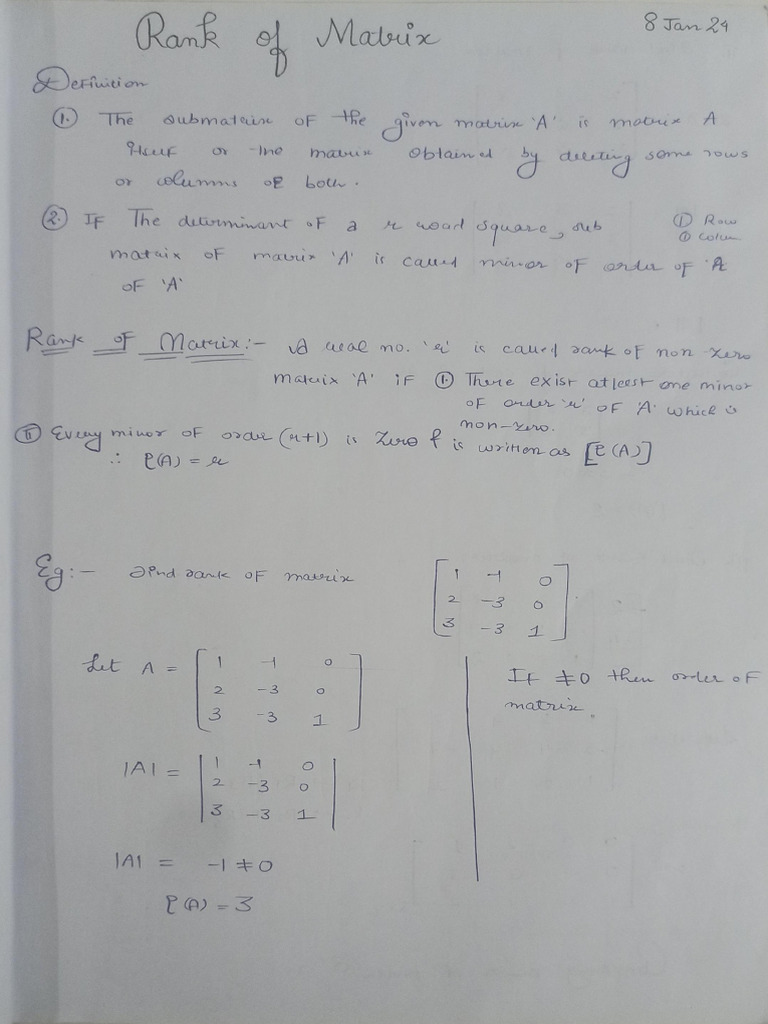 Rank of Matrix
8 Jan 24
Definition
1. The submatrix of the given matrix 'A' is matrix A
itself or the matrix obtained by deleting some rows
or columns or both.
2. If The determinant of a r square, sub
① Row
② Colum
matrix of matrix 'A' is called minor of order of 'r
of 'A'
Rank of Matrix:- A real no. 'r' is called rank of non zero
matrix 'A' if ① There exist atleest one minor
of order 'r' of 'A' which is
non-zero.
② Every minor of order (r+1) is zero & is written as [ρ(A)]
∴ ρ(A) = r
Eg:- Find rank of matrix
[ 1 -1 0
2 -3 0
3 -3 1 ]
Let A = [ 1 -1 0
2 -3 0
3 -3 1 ]
If ≠0 then order of
matrix.
|A| = | 1 -1 0
2 -3 0
3 -3 1 |
|A| = -1 ≠ 0
ρ(A) = 3